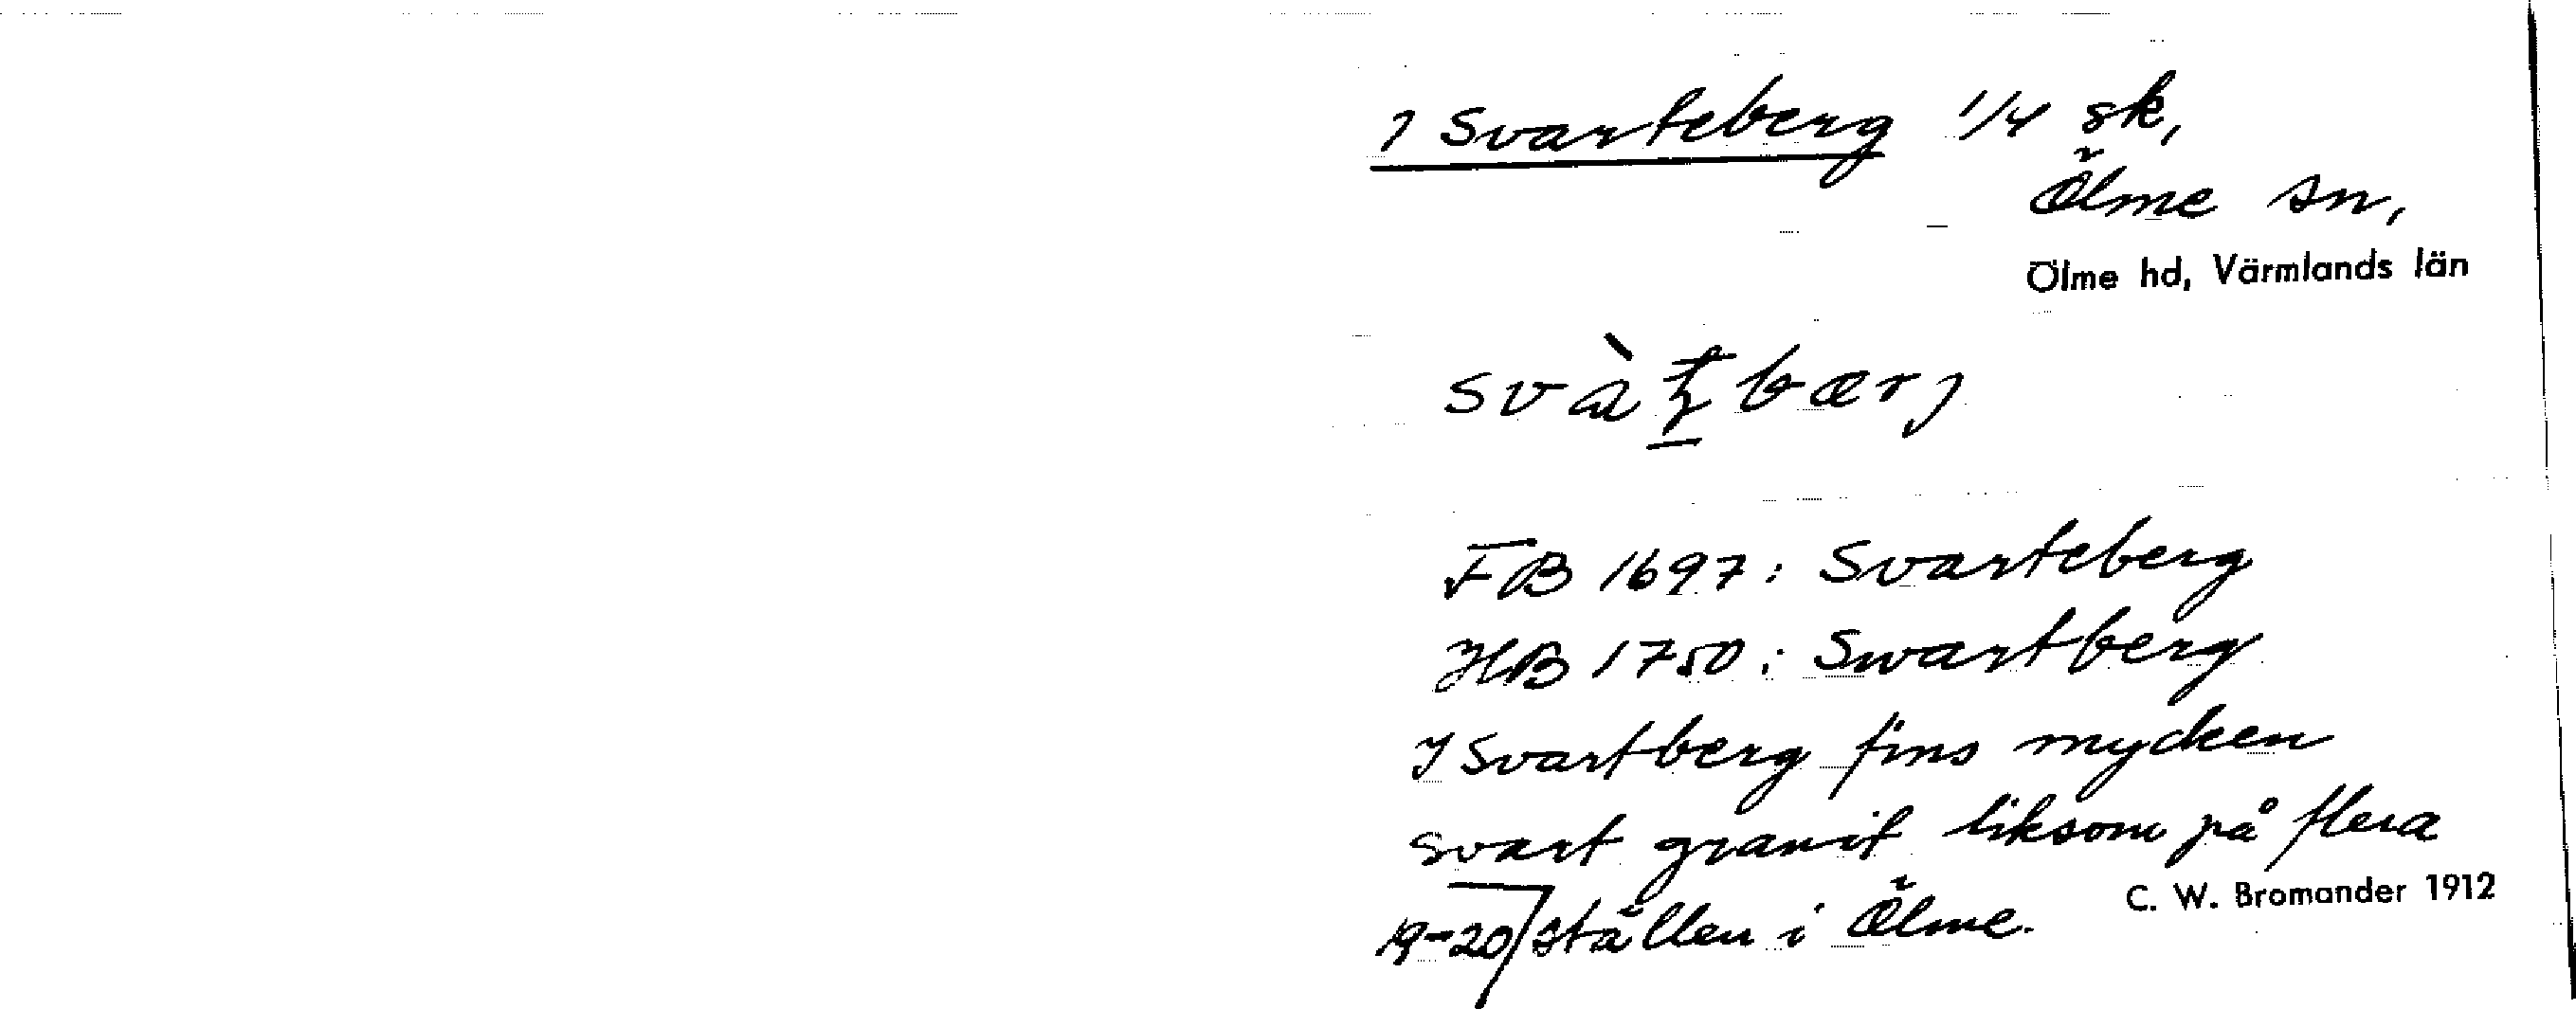 1 Svarteberg 1/4 sk,
Ölme sn,
Ölme hd, Värmlands län
bærj
FB 1697: Svarteberg
HB 1750: Swartberg
I Svartberg fins mycken
svart granit liksom på flera
19-20 ställen i Ölme.
C. W. Bromander 1912